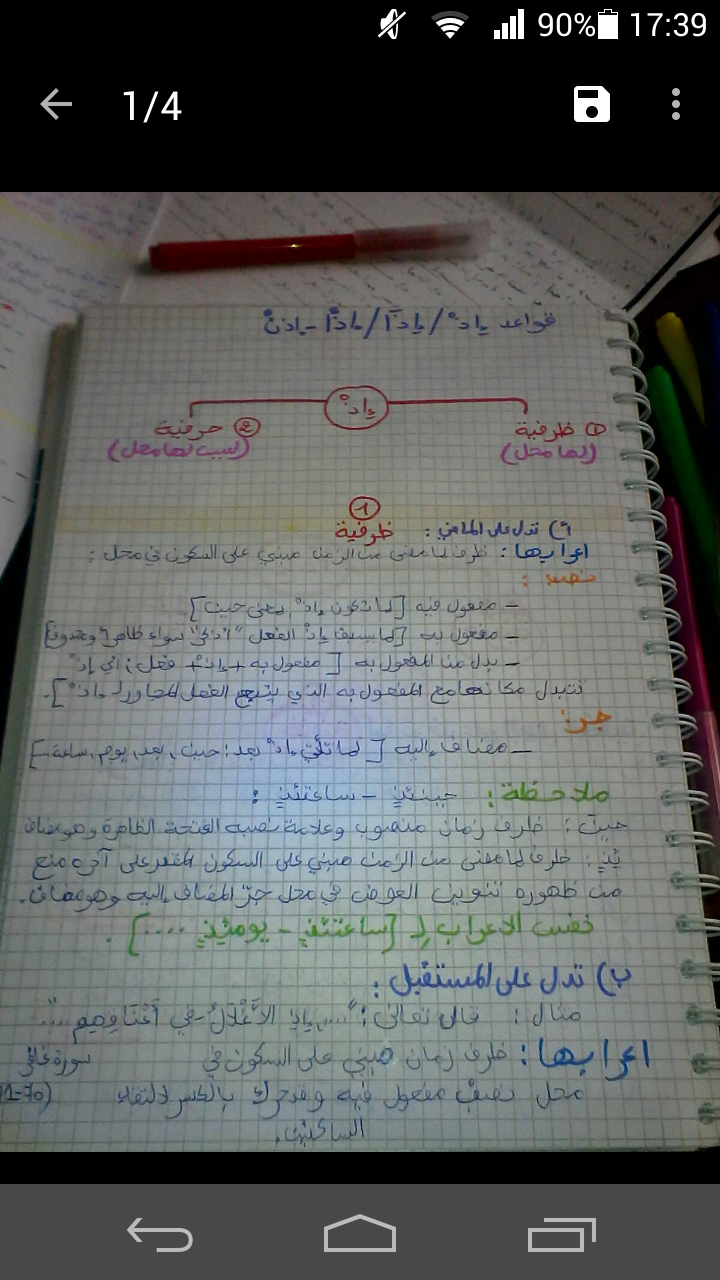 90% 17:39
1/4
قواعد إذْ / إذَا / إذًا - إذنْ
إذْ
① ظرفية
② حرفية
(لها محل)
(ليست لها محل)
①
ظرفية
أ) تدل على الماضي :
اعرابها : ظرف لما مضى من الزمن مبني على السكون في محل :
نصب :
– مفعول فيه [لما تكون إذْ بمعنى حين]
– مفعول به [لما يسبق إذْ الفعل "اذكر" سواء ظاهر أو محذوف]
– بدل من المفعول به [مفعول به + إذْ + فعل ; أي إذْ
تتبدل مكانها مع المفعول به الذي يتبع الفعل المجاور لـ إذْ].
جر:
– مضاف إليه [لما تأتي إذْ بعد : حين ، بعد ، يوم ، ساعة –]
ملاحظة : حينئذٍ – ساعتئذٍ :
حينَ : ظرف زمان منصوب وعلامة نصبه الفتحة الظاهرة وهو مضاف
ئذٍ : ظرف لما مضى من الزمن مبني على السكون المقدر على آخره منع
من ظهوره تنوين العوض في محل جرّ المضاف إليه وهو مضاف.
نفس الاعراب لِـ [ساعتئذٍ – يومئذٍ ....].
ب) تدل على المستقبل :
مثال : قال تعالى : "....إذِ الأَغْلَالُ في أَعْنَاقِهِم ..."
اعرابها : ظرف زمان مبني على السكون في
سورة غافر
محل نصب مفعول فيه وقد حرك بالكسر لالتقاء
الساكنين.